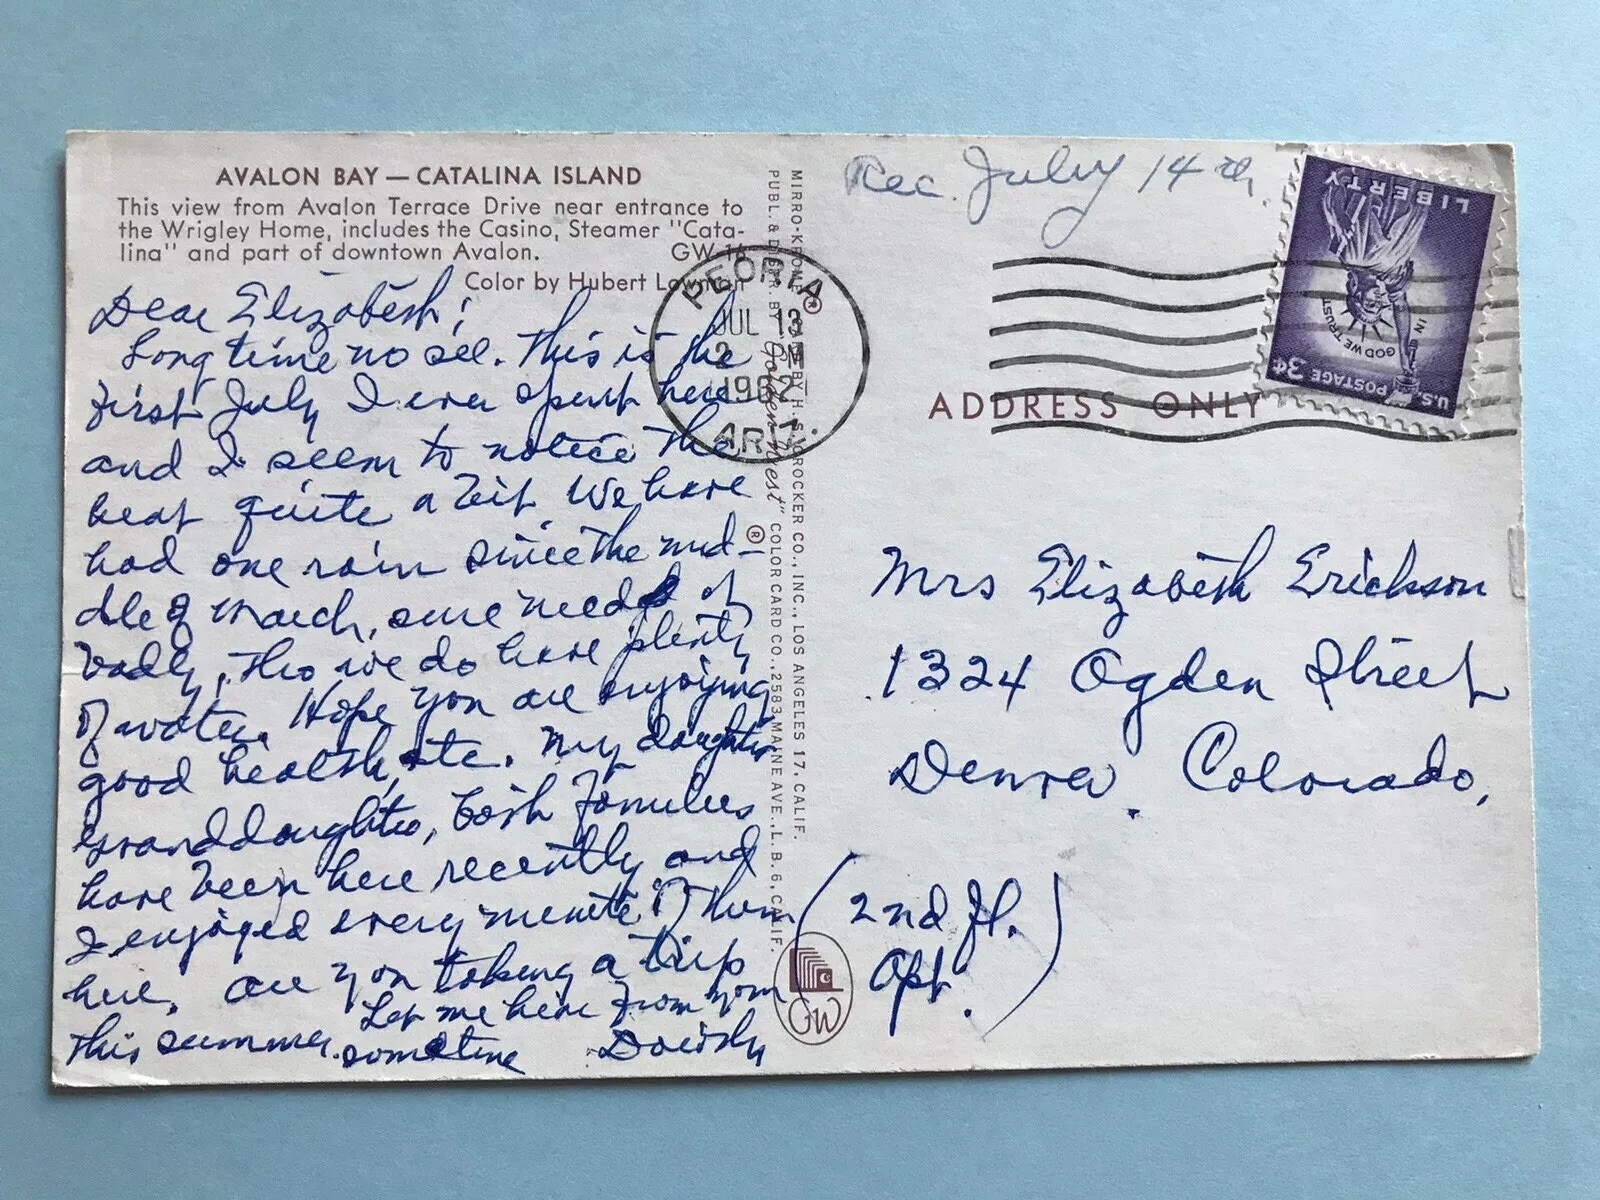 AVALON BAY — CATALINA ISLAND
This view from Avalon Terrace Drive near entrance to
the Wrigley Home, includes the Casino, Steamer "Cata-
lina" and part of downtown Avalon. GW-16
Color by Hubert Lowman
Dear Elizabeth;
Long time no see. This is the
first July I ever spent here
and I seem to notice the
heat quite a bit We have
had one rain since the mid-
dle of March, sure need it
badly, tho we do have plenty
of water. Hope you are enjoying
good health, etc. My daughter
Granddaughter, both families
have been here recently and
I enjoyed every minute of them
here. Are you taking a trip
this summer. Let me hear from you
sometime Dorothy
MIRRO-KROME ® CARD BY H. S. CROCKER CO., INC., LOS ANGELES 17, CALIF.
PUBL. & DISTR. BY "Golden West" ® COLOR CARD CO., 2583 MAINE AVE., L. B. 6, CALIF.
GW
PEORIA
JUL 13
2 PM
1962
ARIZ.
Rec. July 14th.
LIBERTY
IN GOD WE TRUST
U.S. POSTAGE 3¢
ADDRESS ONLY
Mrs Elizabeth Erickson
1324 Ogden Street
Denver. Colorado,
(2nd fl.
Apt.)